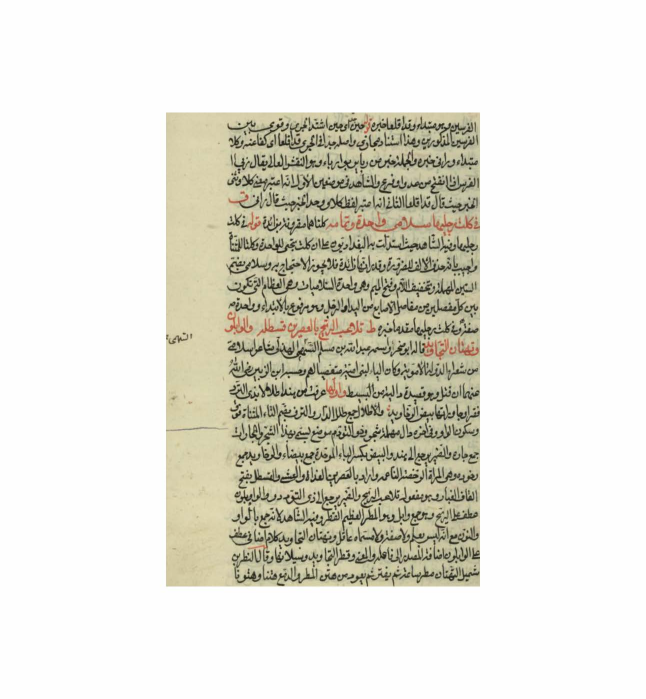 الفرسين وهو مبتداء وقد اقلعا خبره حين اي حين اشتد الجري وقوى بين
الفرسين المذكورين وهذا اسناد مجازي واصله جد في الجري قد اقلعا اي كفا عنه وكلا
مبتداء ورابي خبره والجملة حال من رباير بوا رباء وهو النفس العالي يقال ربا
الفرس اذا انتفخ من عدو او فزع والشاهد في موضعين الاول انه اعتبر معنى كلا وثنى
الخبر حيث قال قد اقلعا الثاني انه اعتبر لفظ كلا ووحد الخبر حيث قال رابي
في كلت رجليها سلامى واحدة وتمامه كلتاهما مقرونة بزائدة قوله في كلت
رجليها وفيه الشاهد حيث استدلت به البغداديون على ان كلت تجيء للواحدة وكلتا للمثنى
واجيب بانه حذف الالف للضرورة وقدر انها زائدة فلا يجوز الاحتجاج به وسلامى بضم
السين المهملة وتخفيف اللام وفتح الميم وهي واحدة السلاميات وهي العظام التي تكون
بين كل مفصلين من مفاصل الاصابع من اليد او الرجل وهو مرفوع بالابتداء وواحدة
صفته وفي كلت رجليها مقدما خبره ط تلاعب الريح بالعصرين قسطله والوابلون
وتهتان التجاويد قاله ابو صخر واسمه عبد الله بن سلم السهمي الهذلي شاعر اسلامي
من شعراء الدولة الاموية وكان
عنهما ان قتل وهو قصيدة دالية من البسيط واولها عرفت من هند اطلالا بذي التود
قفرا وجاراتها البيض الرخاويد والاطلال جمع طلل الدار والتود بضم التاء المثناة من فوق
وسكون الواو وفي اخره دال مهملة شجر وذو التود موضع سمي بهذا الشجر والجارات
جمع جارة والضمير يرجع الى هند والبيض بكسر الباء الموحدة جمع بيضاء والرخاويد جمع
رخودة وهي المراة الرخصة الناعمة واراد بالعصرين الغداة والعشي والقسطل بفتح
القاف الغبار وهو مفعول تلاعب الريح والضمير يرجع الى ذي التود والوابلون
عطف على الريح وهو جمع وابل وهو المطر العظيم القطر وفيه الشاهد لانه جمع بالواو
والنون مع انه ليس بعلم ولا صفة ولا مسماه عاقل وتهتان التجاويد كلام اضافي عطف
على الوابلون اضافة المصدر الى فاعله والمعنى وقطر التجاويد وسيلانها وقال النضر بن
شميل التهتان مطر ساعة ثم يفتر ثم يعود من هتن المطر والدمع هتنا وهتونا